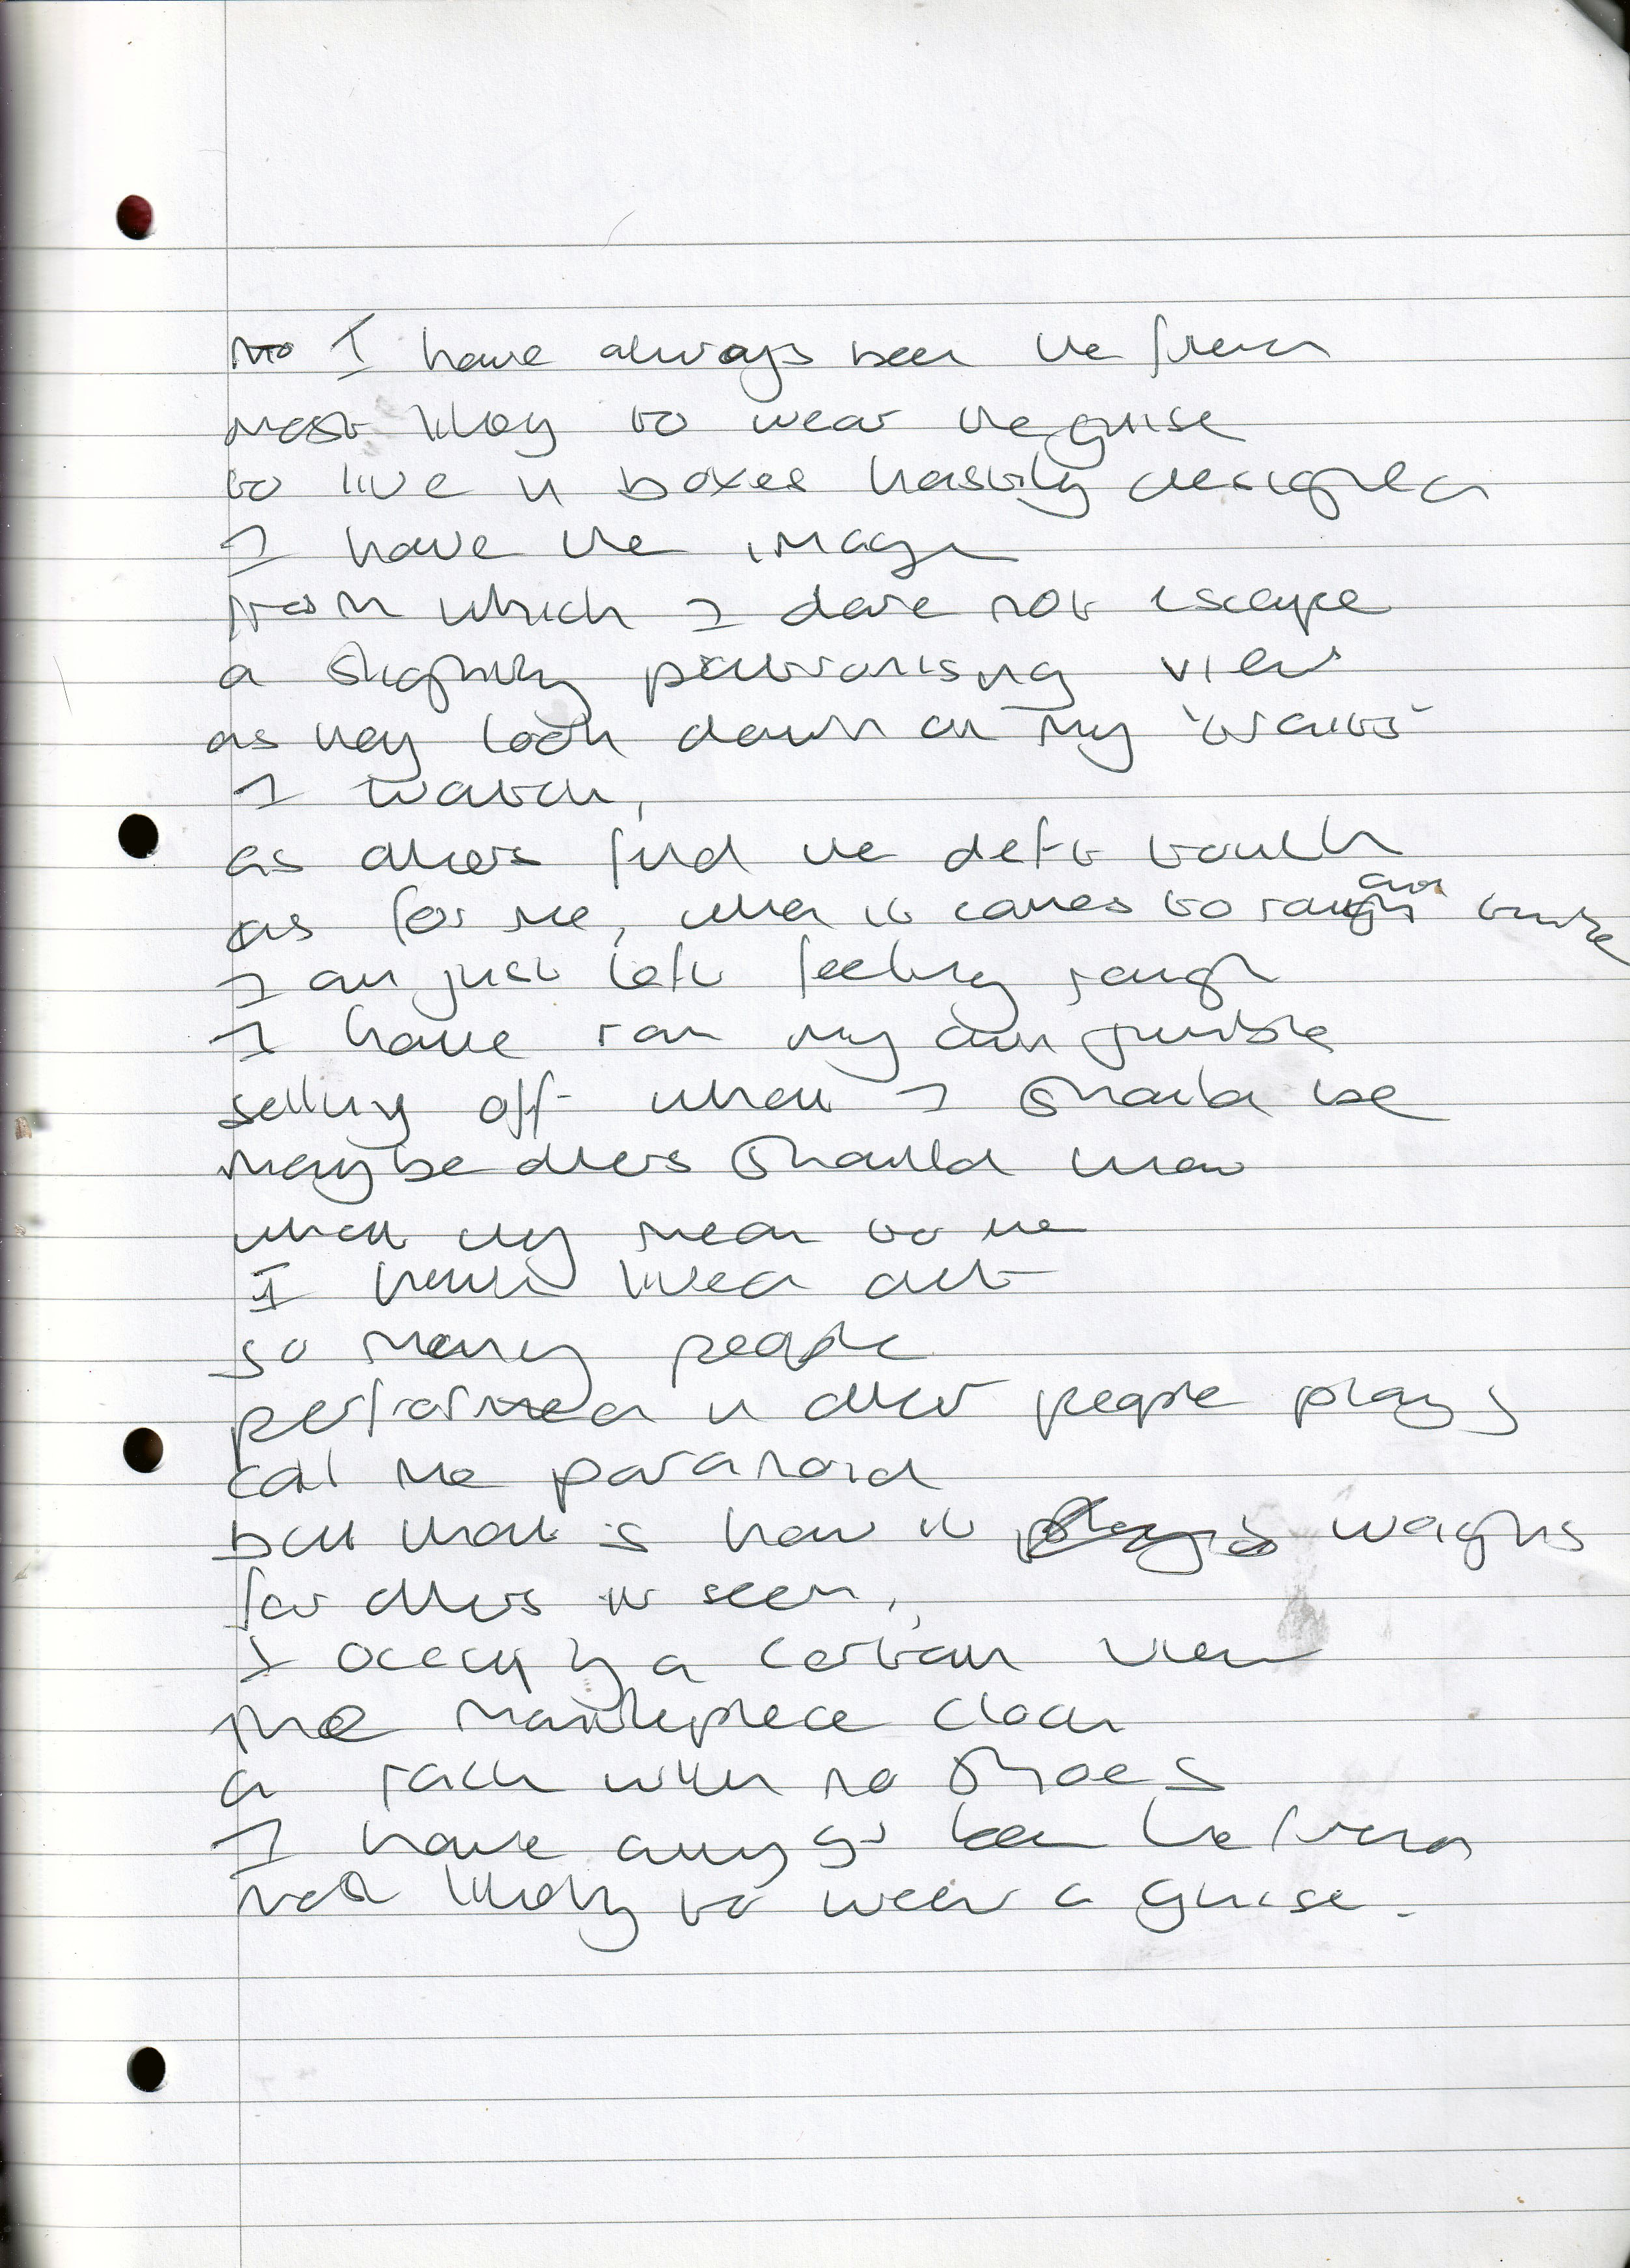 I have always been the friend
most likely to wear the guise
to live in boxes hastily designed
I have the image
from which I dare not escape
a slightly patronising view
as they look down on my 'traits'
I watch,
as others find the deft touch
as for me, when it comes to rough and tumble
I am just left feeling rough
I have ran my own jumble
selling off when I should be
maybe others should know
what they mean to me
I have lived out
so many people
performed in other people plays
call me paranoid
but that is how it weighs
for others it seem,
I occupy a certain view
the mantlepiece clock
a rack with no shoes
I have always been the friend
most likely to wear a guise.